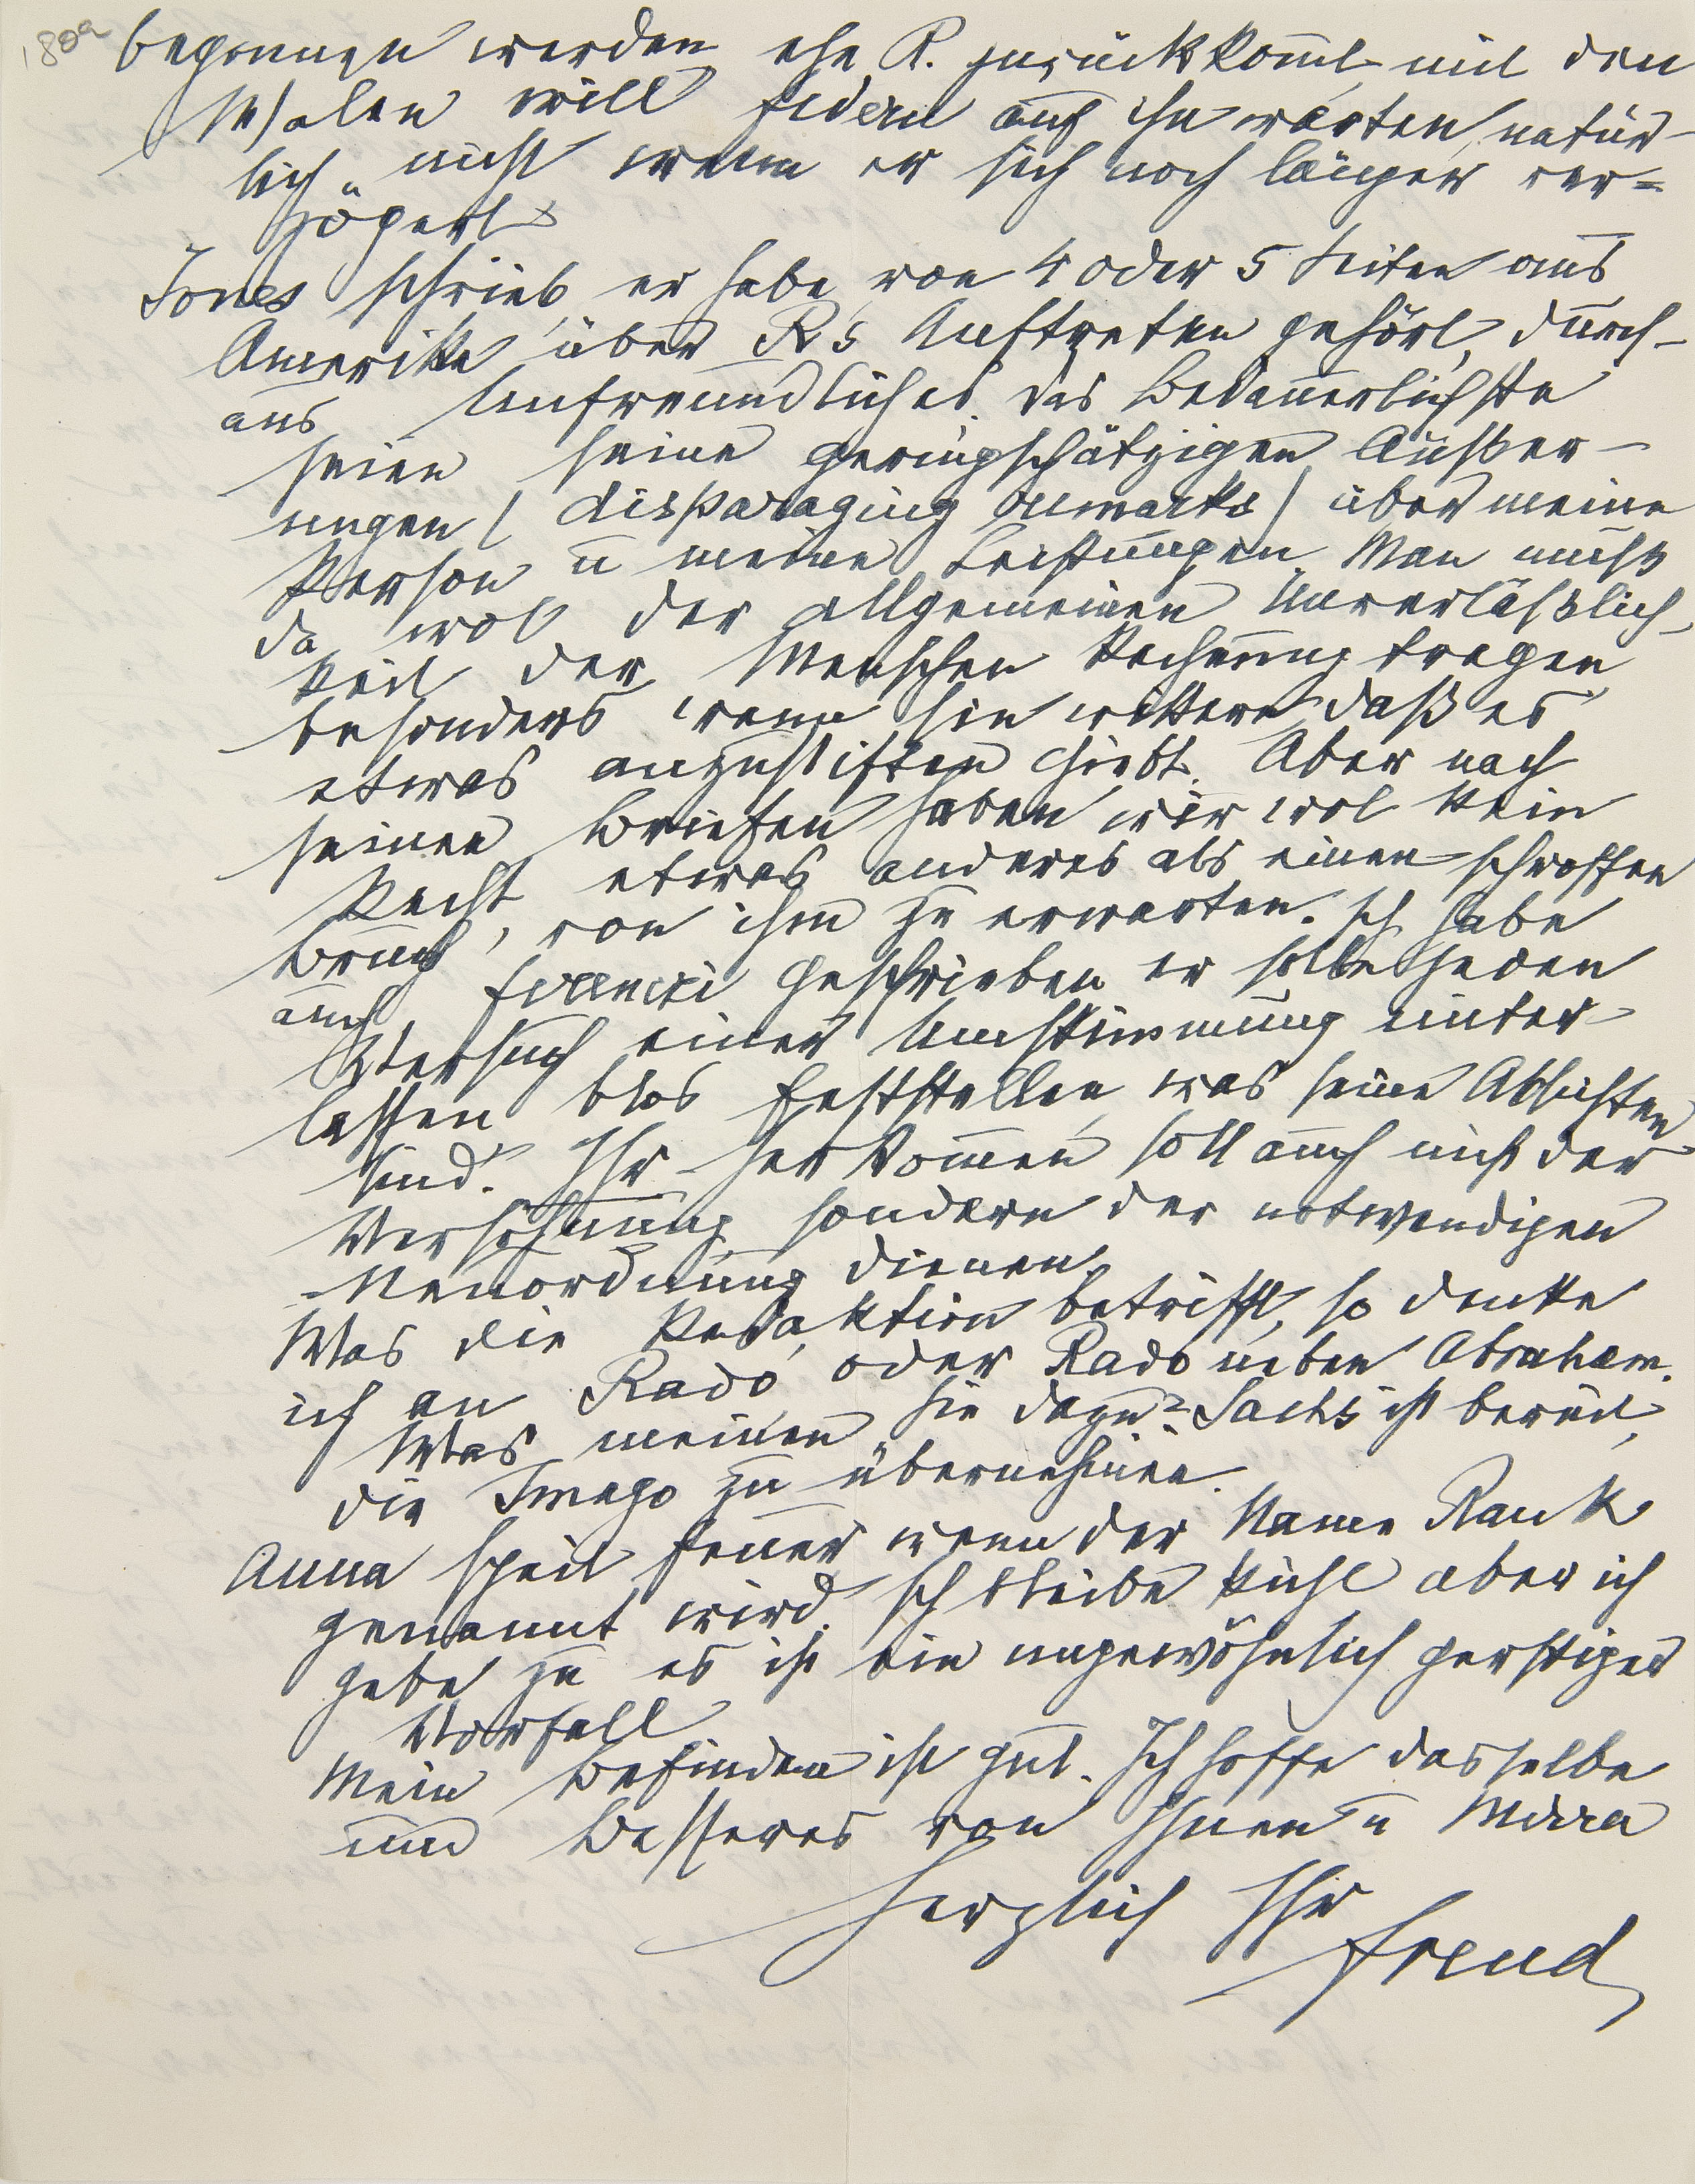 180a
begonnen werden, ehe R. zurückkom̄t mit den
Walen will jedem auf ihn warten, natür-
lich nicht wenn er sich noch länger ver=
zögert.
Jones schrieb, er habe von 4 oder 5 Seiten aus
Amerika über R's Auftreten gehört, durch-
aus Unfreundliches. Das Bedauerlichste
seien seine geringschätzigen Äußer-
ungen (disparaging remarks) über meine
Person u meine Leistungen. Man muß
da wol der allgemeinen Unverläßlich-
keit der Menschen Rechnung tragen
besonders wenn sie wittern, daß es
etwas anzustiften giebt. Aber nach
seinen Briefen haben wir wol kein
Recht etwas anderes als einen schroffen
Bruch, von ihm zu erwarten. Ich habe
auch Ferenczi geschrieben er solle jeden
Versuch einer Umstimmung unter-
lassen blos feststellen, was seine Absichten
sind. Ihr Herkom̄en soll auch nicht der
Versöhnung, sondern der notwendigen
Neuordnung dienen.
Was die Redaktion betrifft, so denke
ich an Radó oder Rado neben Abraham.
Was meinen Sie dazu? Sachs ist bereit,
die Imago zu übernehmen.
Anna speit Feuer wenn der Name Rank
genannt wird. Ich bleibe kühl aber ich
gebe zu es ist ein ungewöhnlich garstiger
Vorfall
Mein Befinden ist gut. Ich hoffe dasselbe
und Besseres von Ihnen u Mirra
Herzlich Ihr
Freud